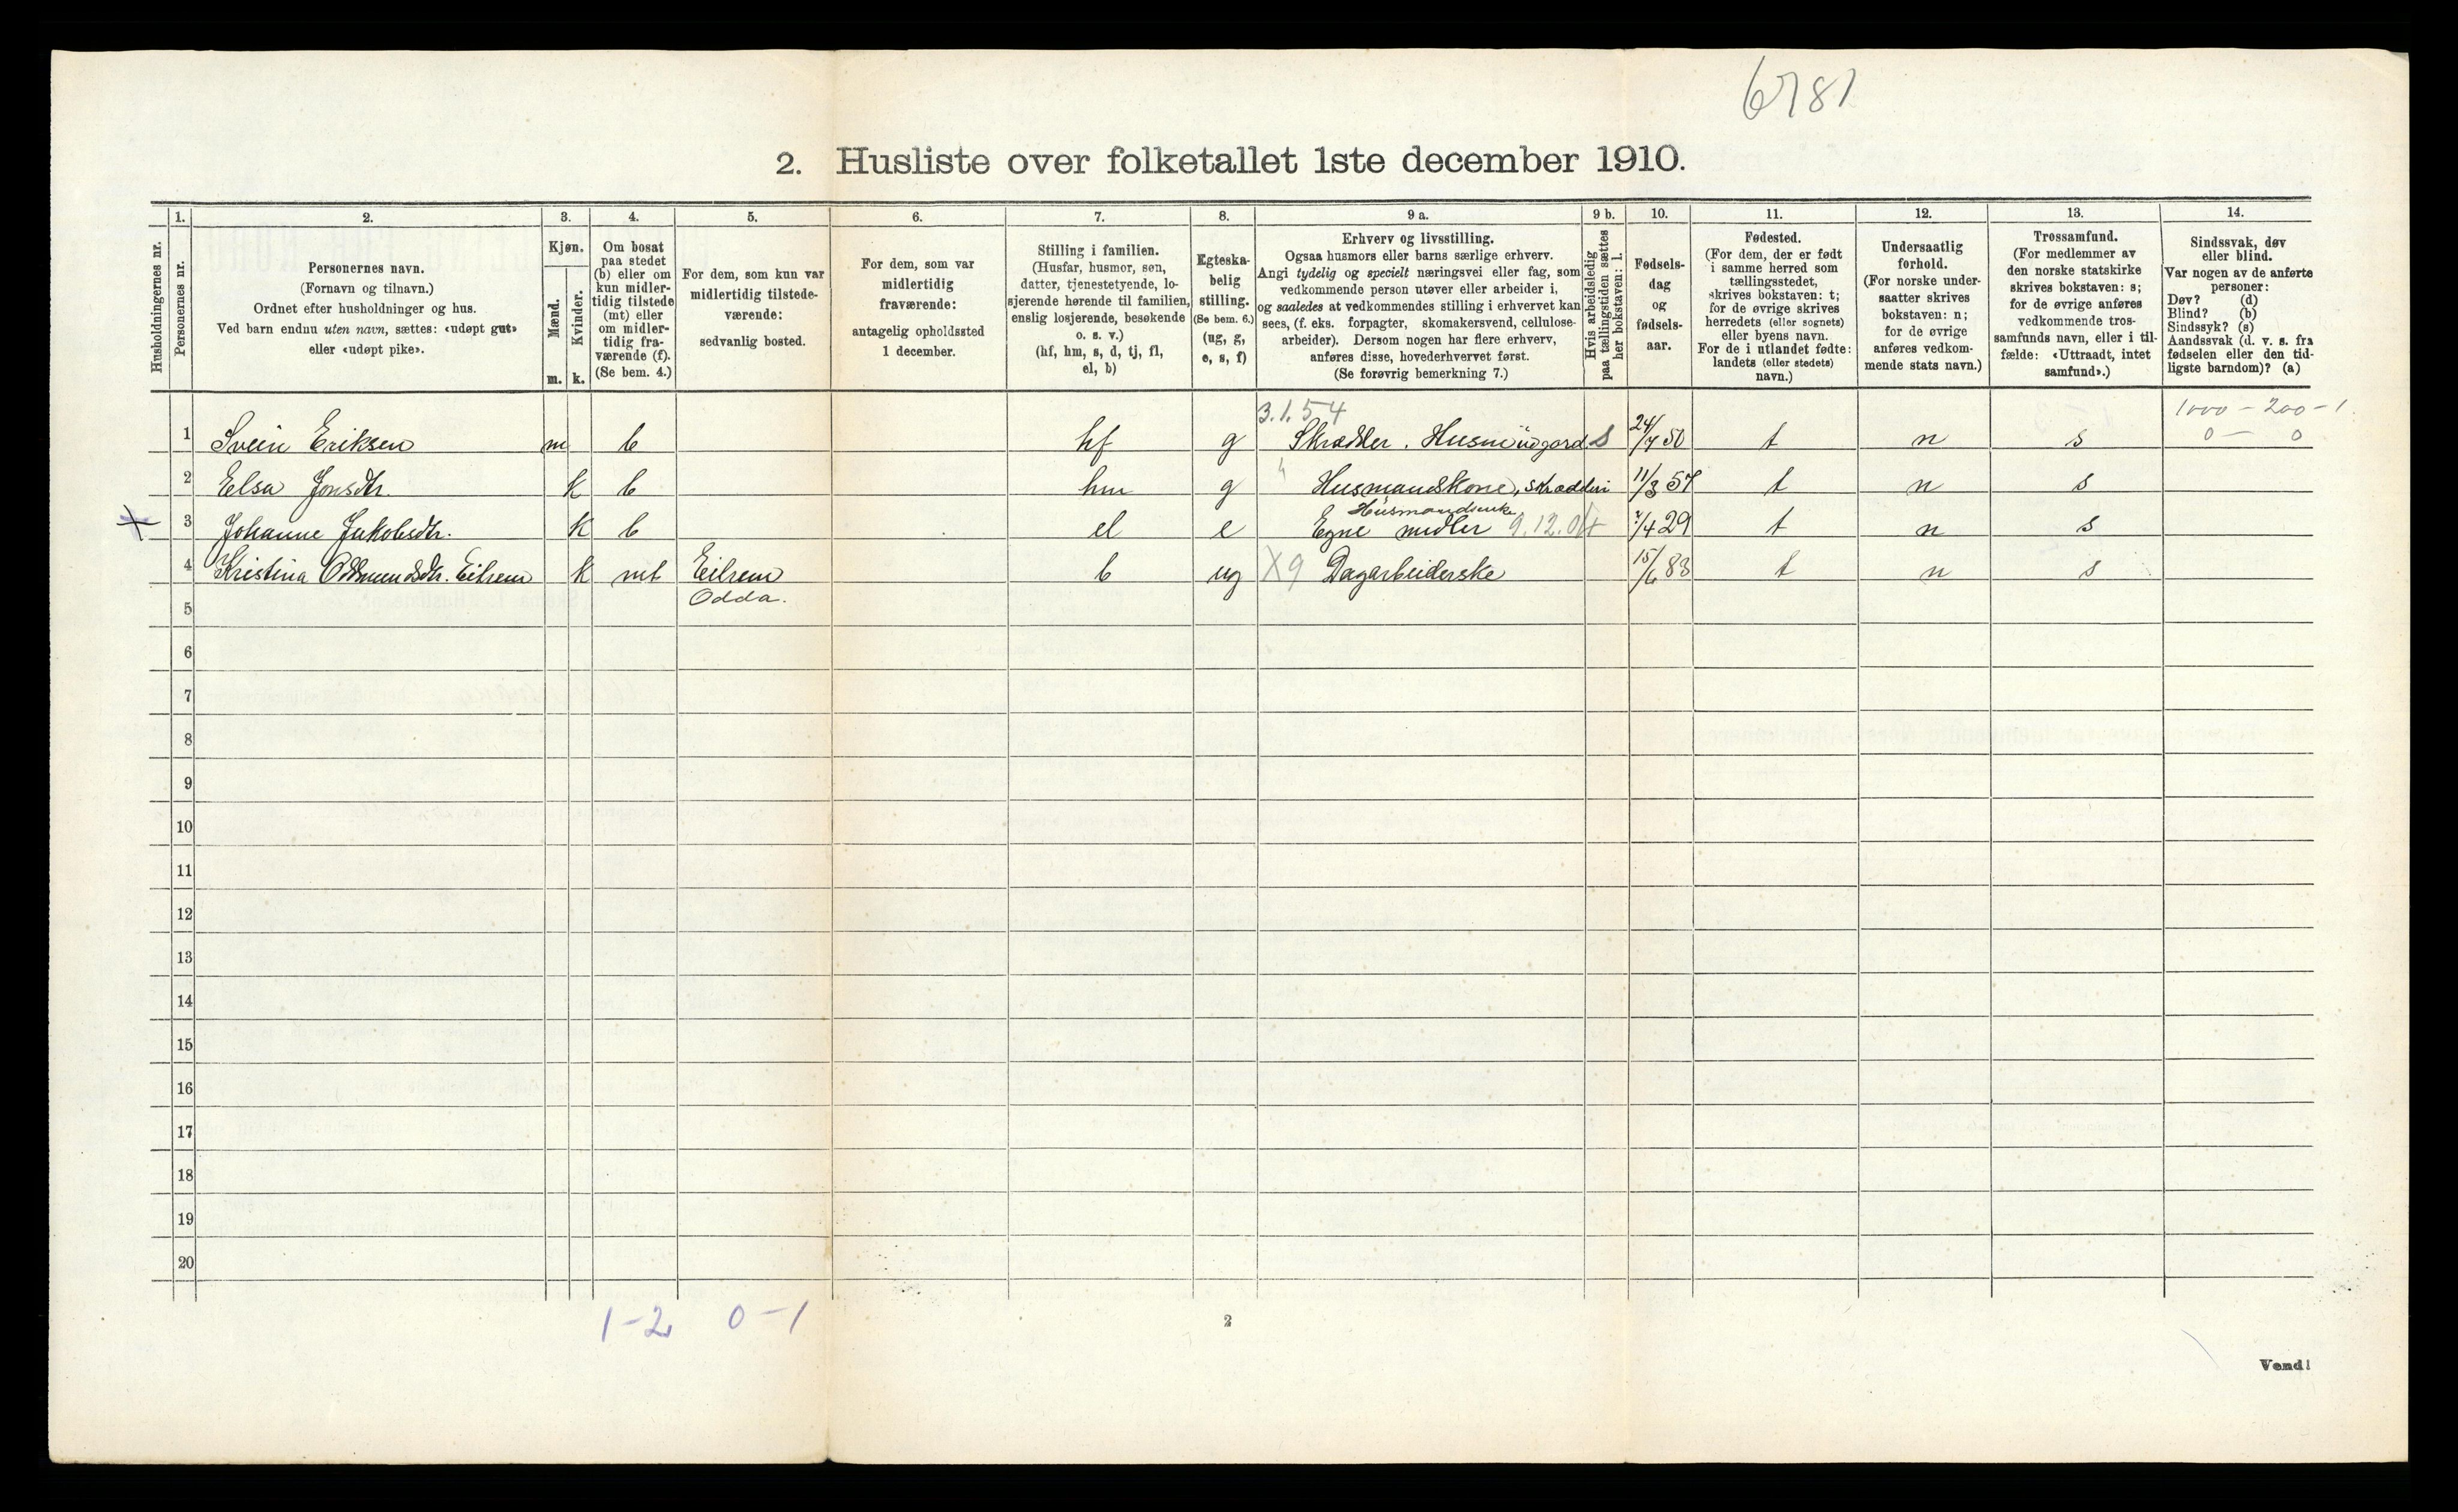 6781
2. Husliste over folketallet 1ste december 1910.
Husholdningernes nr.
1.
Personernes nr.
2.
Personernes navn.
(Fornavn og tilnavn.)
Ordnet efter husholdninger og hus.
Ved barn endnu uten navn, sættes: «udøpt gut»
eller «udøpt pike».
3.
Kjøn.
Mænd.
m.
Kvinder.
k.
4.
Om bosat
paa stedet
(b) eller om
kun midler-
tidig tilstede
(mt) eller
om midler-
tidig fra-
værende (f).
(Se bem. 4.)
5.
For dem, som kun var
midlertidig tilstede-
værende:
sedvanlig bosted.
6.
For dem, som var
midlertidig
fraværende:
antagelig opholdssted
1 december.
7.
Stilling i familien.
(Husfar, husmor, søn,
datter, tjenestetyende, lo-
sjerende hørende til familien,
enslig losjerende, besøkende
o. s. v.)
(hf, hm, s, d, tj, fl,
el, b)
8.
Egteska-
belig
stilling.
(Se bem. 6.)
(ug, g,
e, s, f)
9 a.
Erhverv og livsstilling.
Ogsaa husmors eller barns særlige erhverv.
Angi tydelig og specielt næringsvei eller fag, som
vedkommende person utøver eller arbeider i,
og saaledes at vedkommendes stilling i erhvervet kan
sees, (f. eks. forpagter, skomakersvend, cellulose-
arbeider). Dersom nogen har flere erhverv,
anføres disse, hovederhvervet først.
(Se forøvrig bemerkning 7.)
9 b.
Hvis arbeidsledig
paa tællingstiden sættes
her bokstaven: l.
10.
Fødsels-
dag
og
fødsels-
aar.
11.
Fødested.
(For dem, der er født
i samme herred som
tællingsstedet,
skrives bokstaven: t;
for de øvrige skrives
herredets (eller sognets)
eller byens navn.
For de i utlandet fødte:
landets (eller stedets)
navn.)
12.
Undersaatlig
forhold.
(For norske under-
saatter skrives
bokstaven: n;
for de øvrige
anføres vedkom-
mende stats navn.)
13.
Trossamfund.
(For medlemmer av
den norske statskirke
skrives bokstaven: s;
for de øvrige anføres
vedkommende tros-
samfunds navn, eller i til-
fælde: «Uttraadt, intet
samfund».)
14.
Sindssvak, døv
eller blind.
Var nogen av de anførte
personer:
Døv? (d)
Blind? (b)
Sindssyk? (s)
Aandssvak (d. v. s. fra
fødselen eller den tid-
ligste barndom)? (a)
3.1.54 1000 - 200 - 1
1 Svein Eriksen m b hf g Skrædder. Husm 24/7 50 t n s 0 — 0
2 Elsa Jonsdtr. k b hm g Husmandskone, skrædderi 11/3 57 t n s
Husmandsenke
3 Johanne Jakobsdtr. k b el e Egne midler 9.12.0 7/4 29 t n s
4 Kristina Oddmundsdtr. Eitrem k mt Eitrem b ug X9 Dagarbeiderske 15/6 83 t n s
Odda.
5
6
7
8
9
10
11
12
13
14
15
16
17
18
19
20
1-2 0-1
2
Vend!